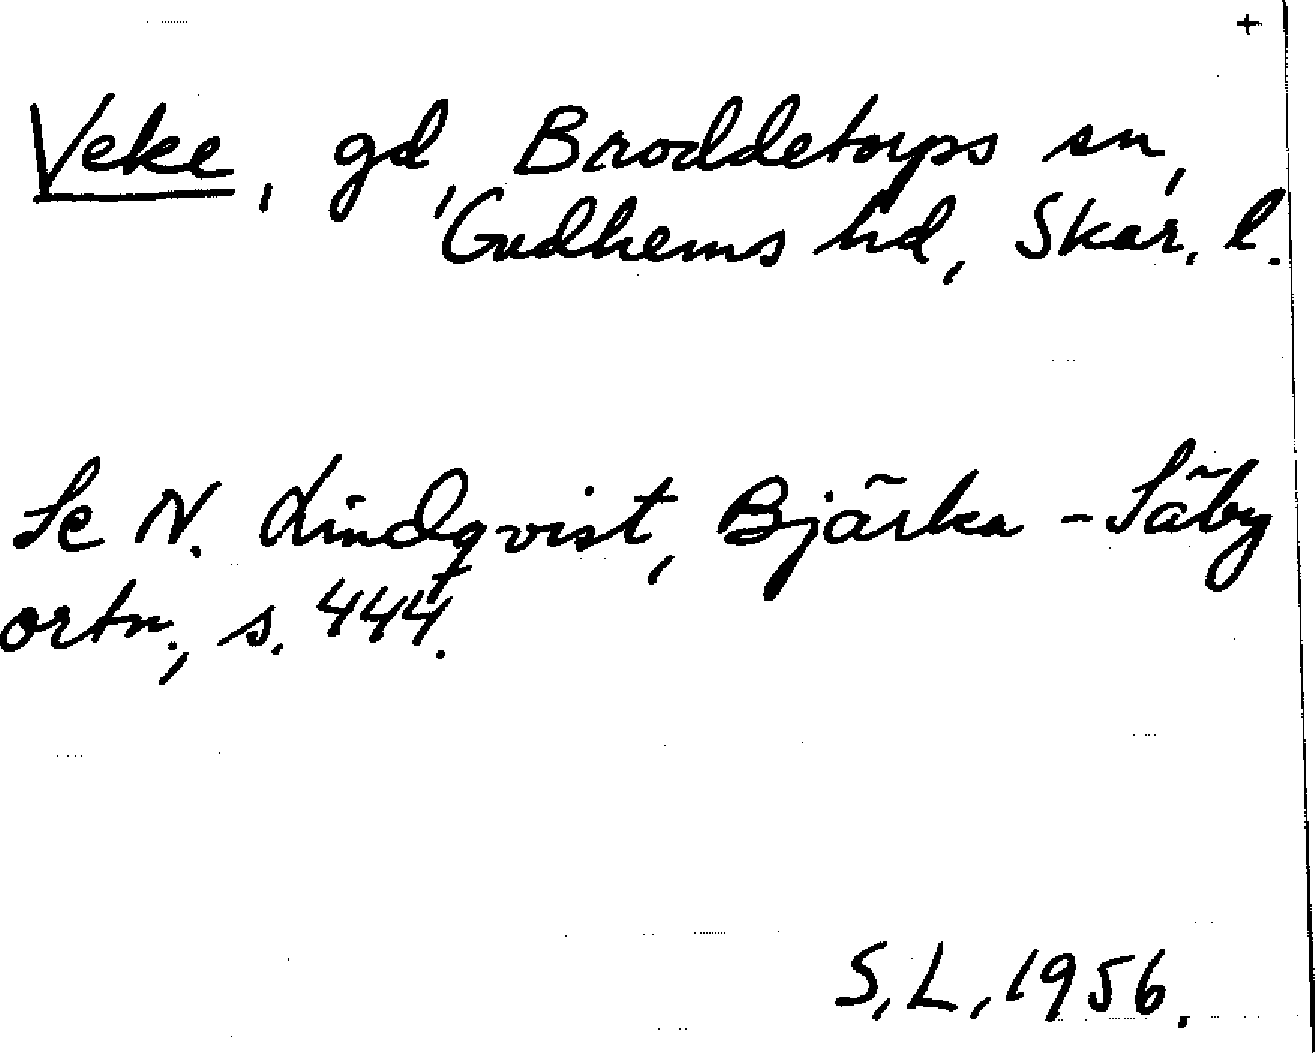 +
Veke, gd, Broddetorps sn,
Gudhems hd, Skar. l.
Se N. Lindqvist, Bjärka-Säby
ortn., s. 444.
S. L. 1956.